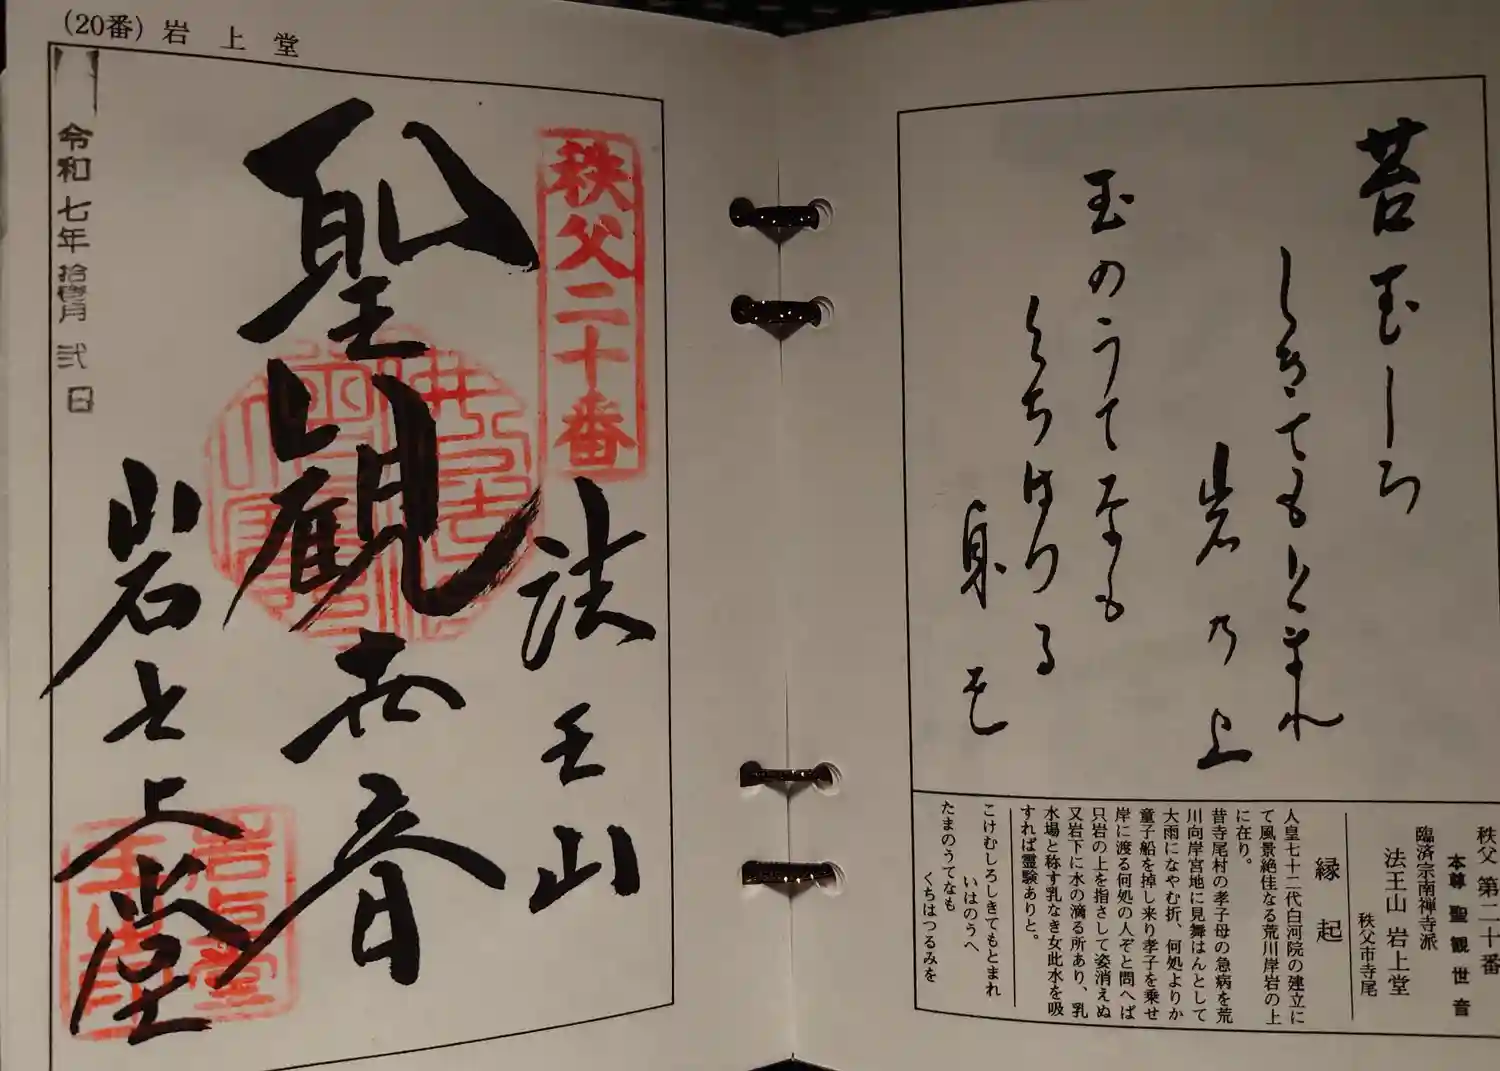 (20番) 岩上堂
令和七年拾壱月弐日
秩父二十番
法王山
聖観世音
岩上堂
苔むしろ
しきてもとまれ
岩乃上
玉のうてなも
くちはつる
身を
秩父 第二十番
本尊 聖観世音
臨済宗南禅寺派
法王山 岩上堂
秩父市寺尾
縁起
人皇七十二代白河院の建立に
て風景絶佳なる荒川岸岩の上
に在り。
昔寺尾村の孝子母の急病を荒
川向岸宮地に見舞はんとして
大雨になやむ折、何処よりか
童子船を掉し来り孝子を乗せ
岸に渡る何処の人ぞと問へば
只岩の上を指さして姿消えぬ
又岩下に水の滴る所あり、乳
水場と称す乳なき女此水を吸
すれば霊験ありと。
こけむしろしきてもとまれ
いはのうへ
たまのうてなも
くちはつるみを